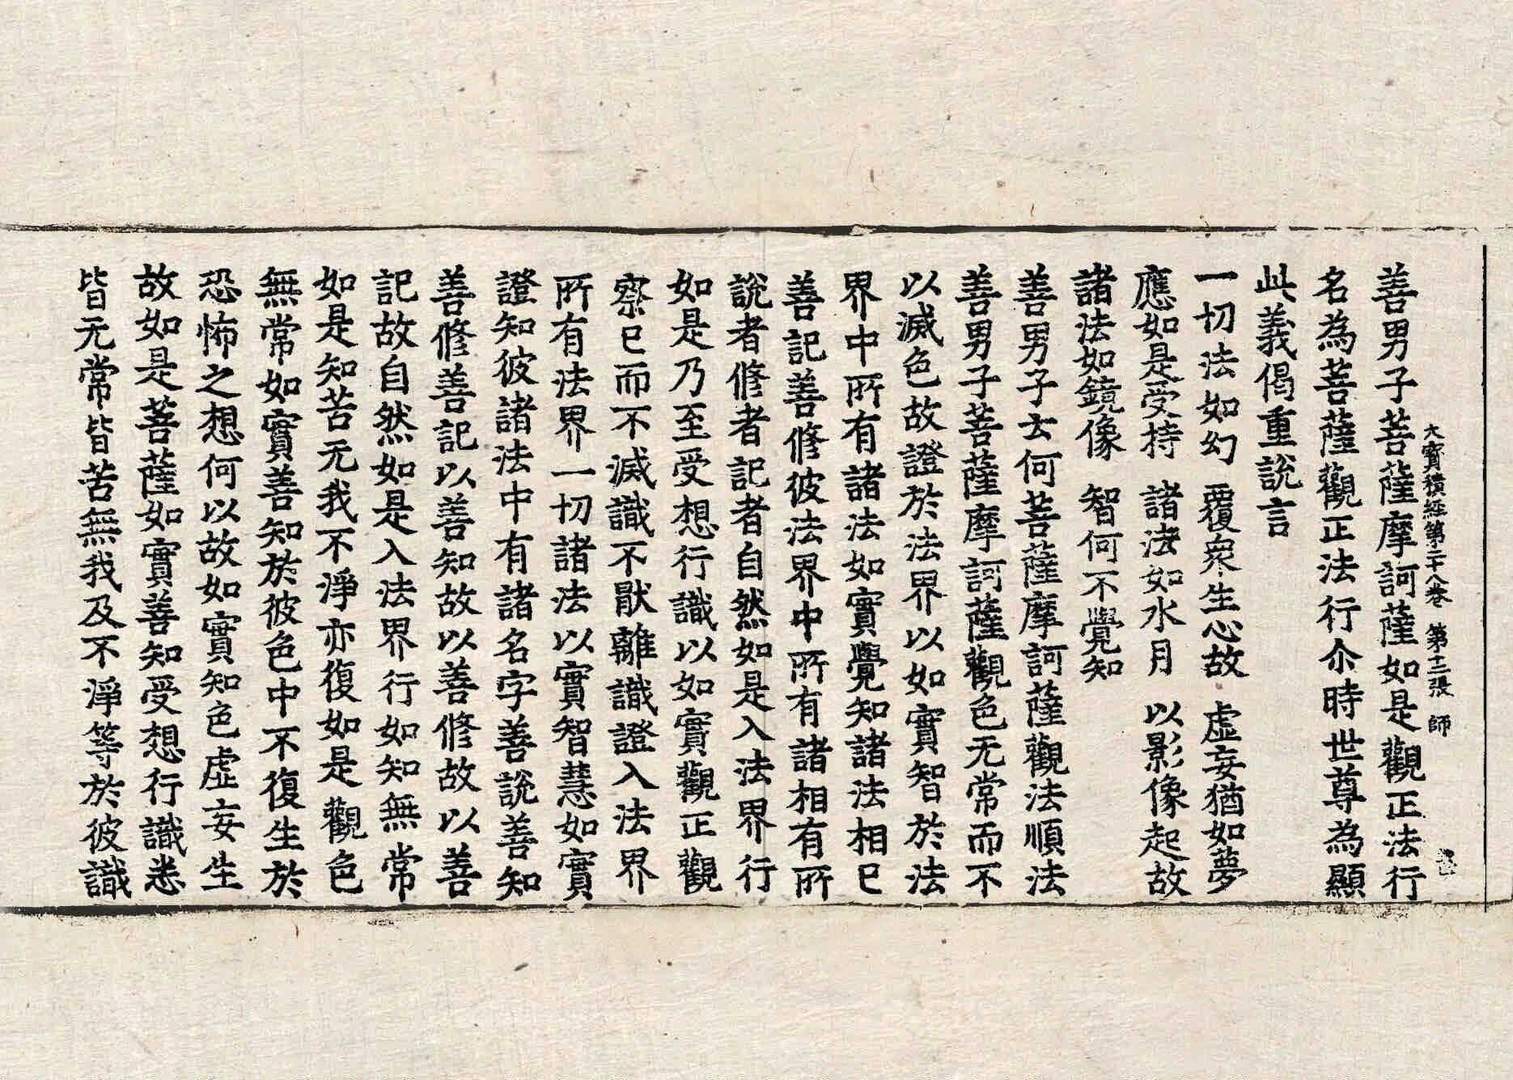 大寶積經第二十八卷 第十二張 師
善男子菩薩摩訶薩如是觀正法行
名為菩薩觀正法行尒時世尊為顯
此義偈重說言
一切法如幻 覆衆生心故 虛妄猶如夢
應如是受持 諸法如水月 以影像起故
諸法如鏡像 智何不覺知
善男子云何菩薩摩訶薩觀法順法
善男子菩薩摩訶薩觀色无常而不
以滅色故證於法界以如實智於法
界中所有諸法如實覺知諸法相已
善記善修彼法界中所有諸相有所
說者修者記者自然如是入法界行
如是乃至受想行識以如實觀正觀
察已而不滅識不猒離識證入法界
所有法界一切諸法以實智慧如實
證知彼諸法中有諸名字善說善知
善修善記以善知故以善修故以善
記故自然如是入法界行如知無常
如是知苦无我不淨亦復如是觀色
無常如實善知於彼色中不復生於
恐怖之想何以故如實知色虛妄生
故如是菩薩如實善知受想行識悉
皆无常皆苦無我及不淨等於彼識